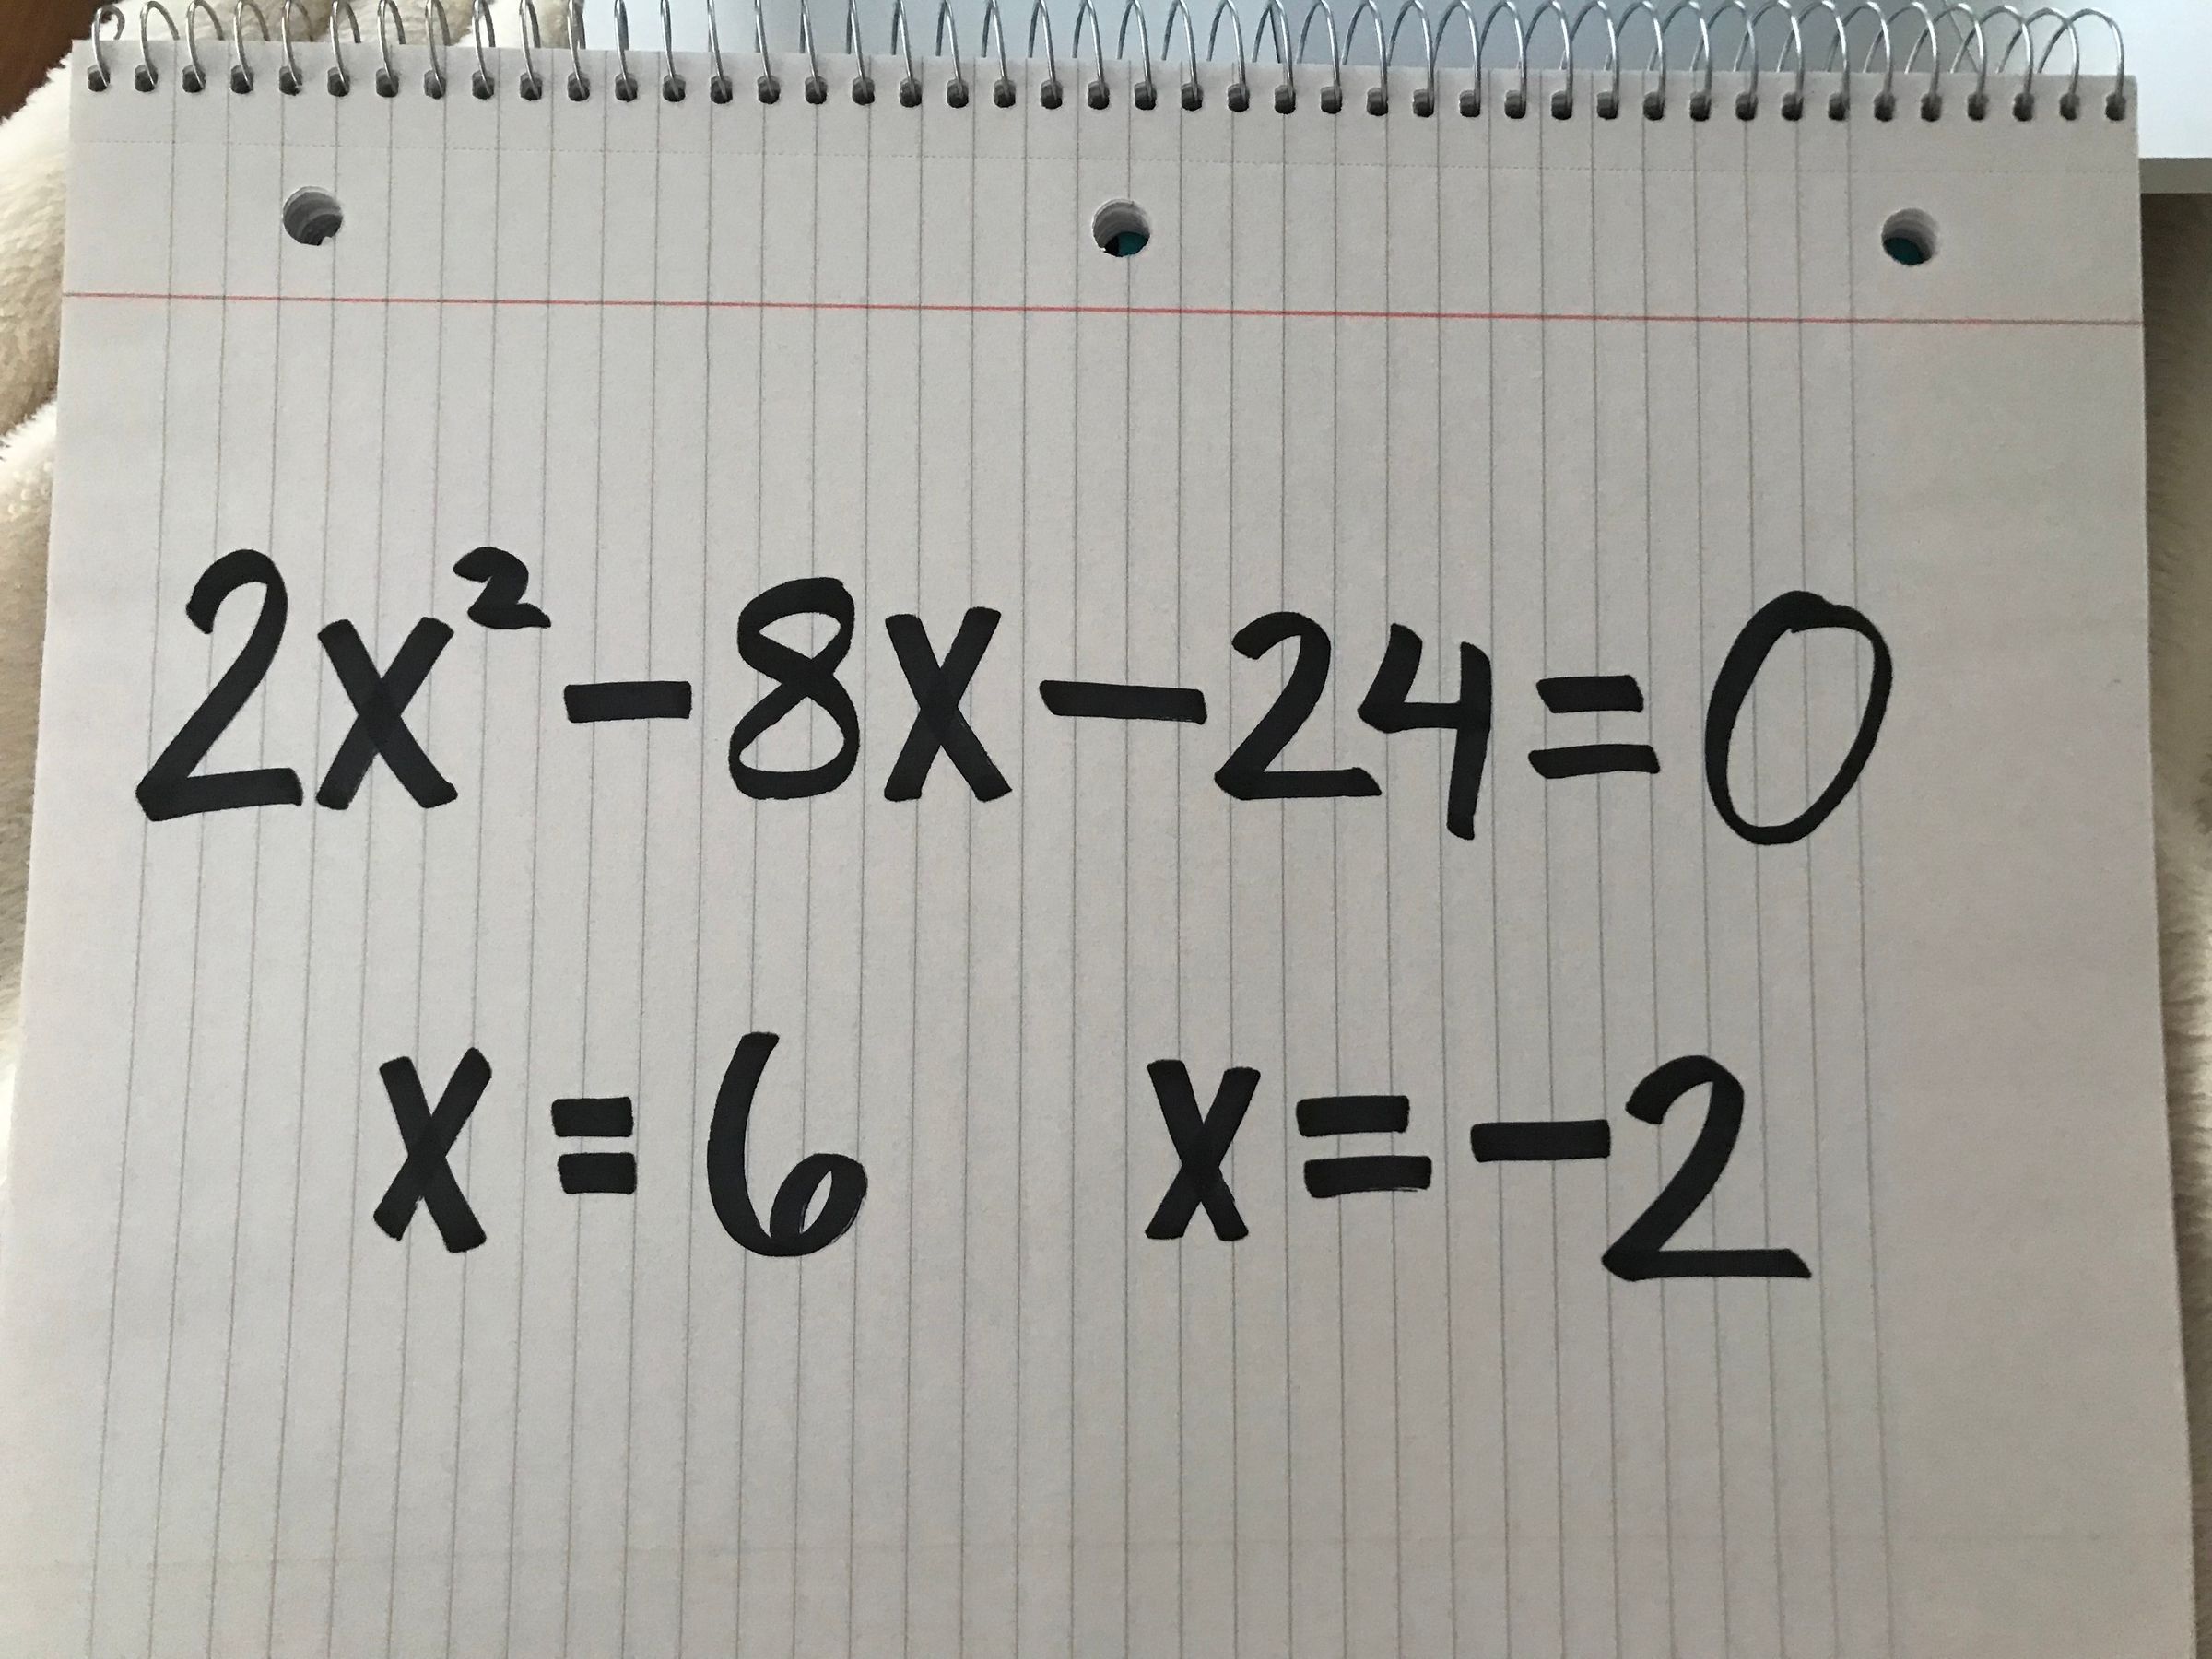 2x²-8x-24=0
x=6 x=-2